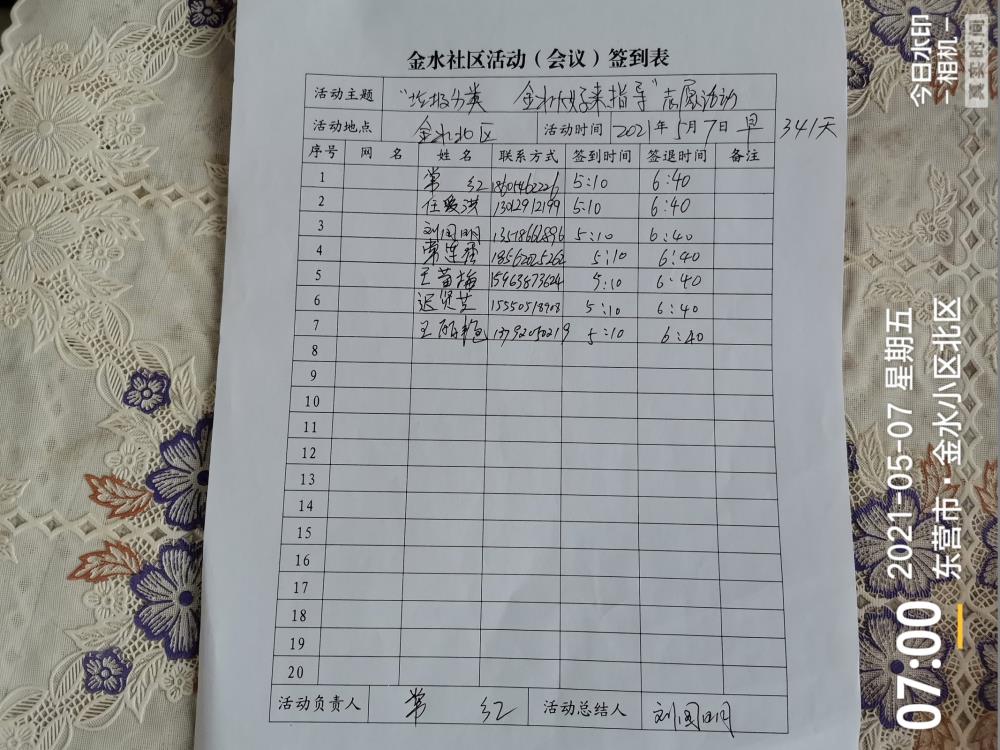 金水社区活动（会议）签到表
活动主题 “垃圾分类 金水大好来指导”志愿活动
活动地点 金水北区 活动时间 2021年5月7日早 341天
序号 网 名 姓 名 联系方式 签到时间 签退时间 备注
1 常 红 18605462226 5:10 6:40
2 任爱洪 13012912199 5:10 6:40
3 刘国明 5:10 6:40
4 常连 18562025262 5:10 6:40
5 王苗梅 15963873624 5:10 6:40
6 迟贤芝 15550518908 5:10 6:40
7 王丽艳 13792050219 5:10 6:40
8
9
10
11
12
13
14
15
16
17
18
19
20
活动负责人 常 红 活动总结人 刘国明
今日水印
-相机-
真实时间
07:00
2021-05-07 星期五
东营市·金水小区北区